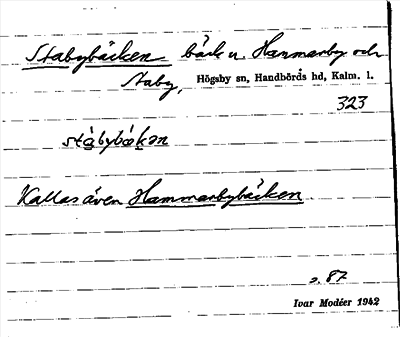 Stabybäcken bäck u. Hammarby och
Staby, Högsby sn, Handbörds hd, Kalm. l.
323
stàbybækən
Kallas även Hammarbybäcken
s. 87
Ivar Modéer 1942